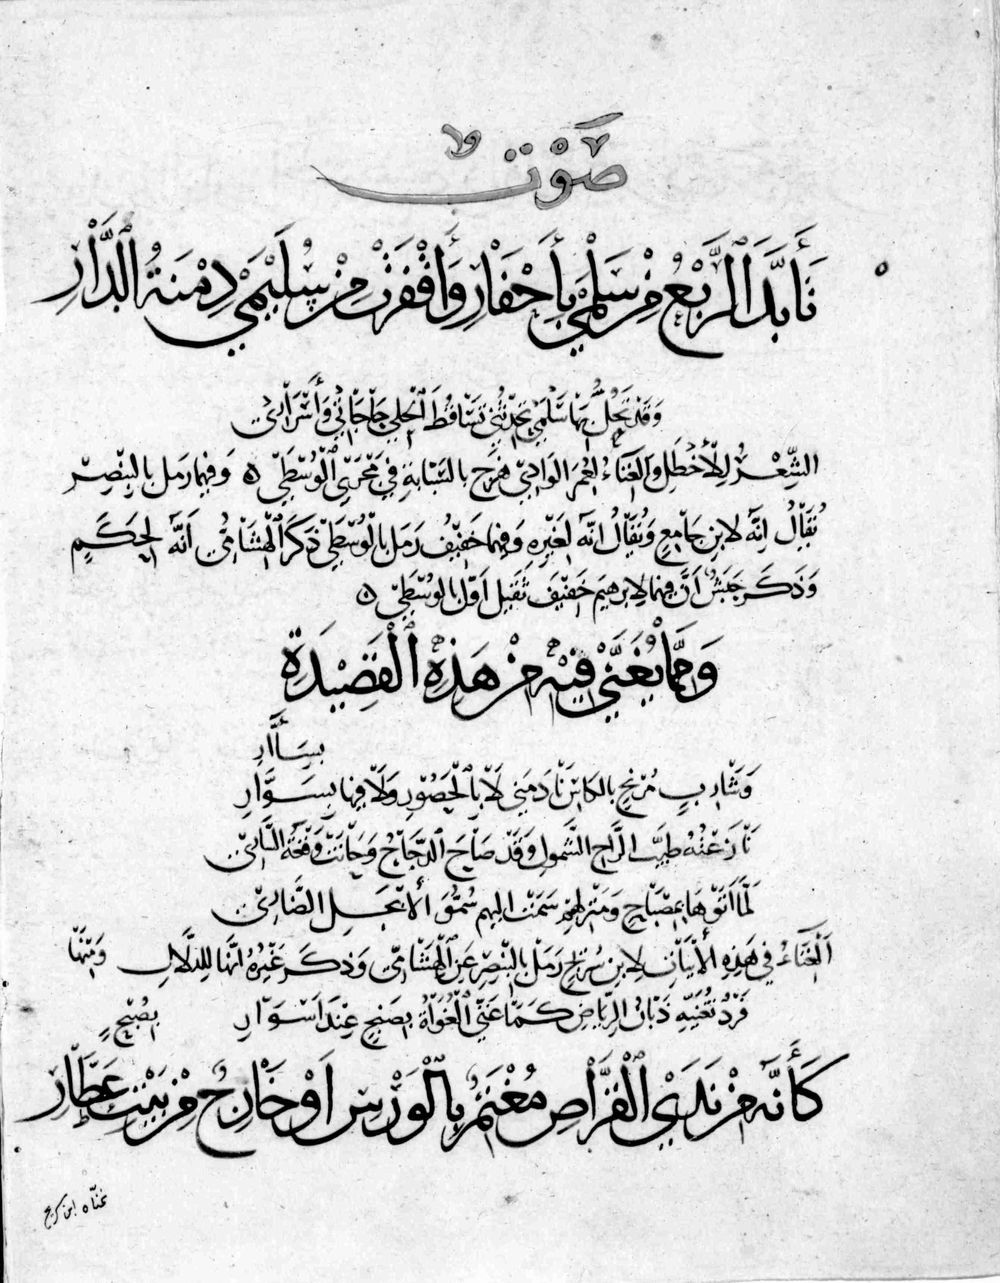 صَوْت
تَأَبَّدَ الرَّبْعُ مِنْ سَلْمَى بِأَحْفَارِ وَأَقْفَرَتْ مِنْ سُلَيْمَى دِمْنَةُ الدَّارِ
وَقَدْ تَحُلُّ بِهَا سَلْمَى تُحَدِّثُنِي تَسَاقُطَ الْحَلْيِ حَاجَاتِي وَأَسْرَارِي
الشِّعْرُ لِلْأَخْطَلِ وَالْغِنَاءُ لِعُمَرَ الْوَادِيِّ هَزَجٌ بِالسَّبَّابَةِ فِي مَجْرَى الْوُسْطَى ۵ وَفِيهَا رَمَل بِالبِنْصِرْ
يُقَالُ إِنَّهُ لِابْنِ جَامِعٍ وَيُقَالُ إِنَّهُ لِغَيْرِهِ وَفِيهَا خَفِيْفُ رَمَلٍ بِالْوُسْطَى ذَكَرَ الْهِشَامِيُّ أَنَّهُ لِحَكَمٍ
وَذَكَرَ حَبَشٌ أَنَّ فِيهَا لِإبْرهِيمَ خَفِيْفَ ثَقِيلٍ أَوَّلَ بِالْوُسْطَى ۵
وَمِمَّا يُغَنَّى فِيْهِ مِنْ هَذِهِ الْقَصِيْدَةِ
بِسَأَّارِ
وَشَارِبٍ مُرْبِحٍ بِالكَاسِ نَادَمَنِي لَا بِالْحَصُوْرِ وَلَا فِيهَا بِسَوَّارِ
نَازَعْتُهُ طَيِّبَ الرَّاحِ الشَّمُولِ وَقَدْ صَاحَ الدَّجَاجُ وَحَانَتْ وَقْعَةُ السَّارِيْ
لَمَّا أَتَوْهَا بِمِصْبَاحٍ وَمِبْزَلِهِمْ سَمَتْ إليهِم سُمُوَّ الأَبْجَلِ الضَّارِيْ
اَلْغِنَاءُ فِي هَذِهِ الْأَبْيَاتِ لِابْنِ سُرَيْجٍ رَمَلٌ بِالْبِنْصِرِ عَنِ الْهِشَامِيْ وَذَكَرَ غَيْرُهُ أَنَّهَا لِلدَّلَالِ وَمِنْهَا
فَرْدٌ تُغَنِّيْهِ ذِبَّانُ الرِّيَاضِ كَمَا غَنَّى الْغُوَاةُ بِصَنْجٍ عِنْدَ أَسْوَارِ بِصُبْحٍ
كَأَنَّهُ مِنْ نَدَى الْقُرَّاصِ مُغْتَمِرٌ بِالْوَرْسِ أَوْ خَارِجٌ مِنْ بَيْتِ عَطَّارِ
غنّاه ابن سريج